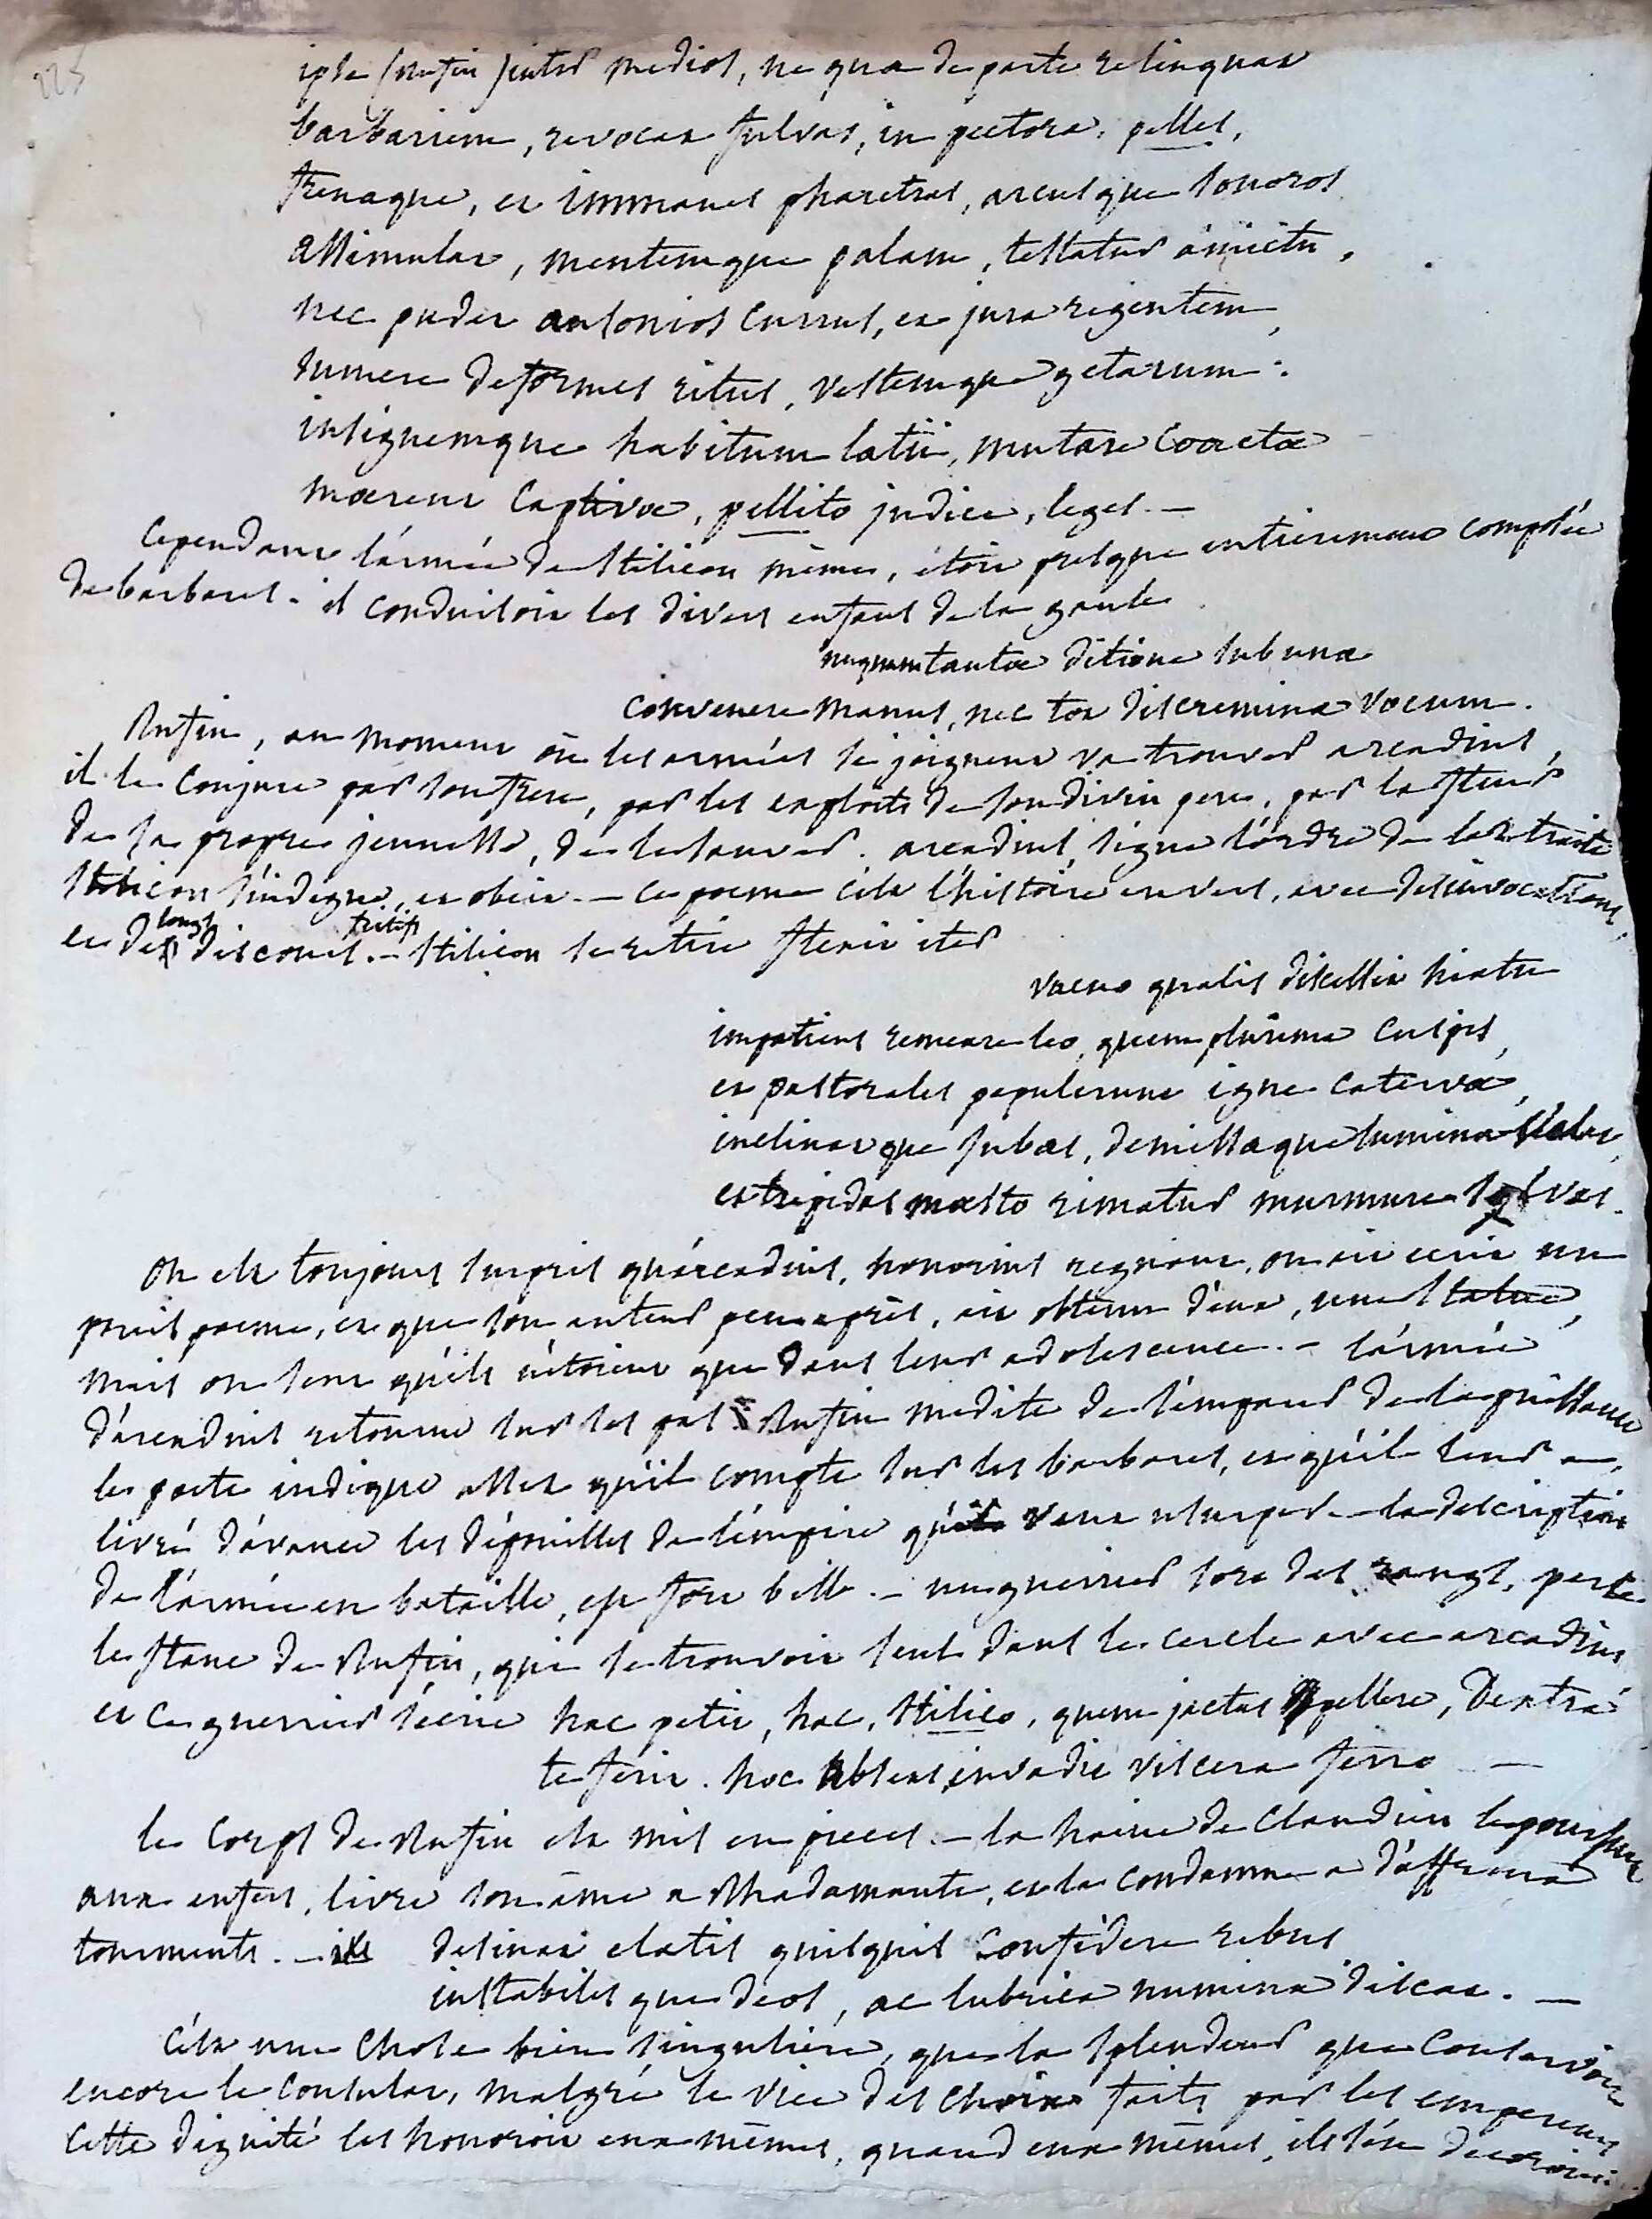 225
ipse (Rufin) inter medios, ne qua de parte relinquat
barbariem, revocat fulvas, in pectora, pelles,
frenaque, et immanes pharetras, arcusque sonoros
assimulat, mentemque palam, testatur amictu,
nec pudet ausonios currus, et jura regentem,
sumere deformes ritus, vestemque getarum :
insignemque habitum latii, mutare coactæ
mœrent captivæ, pellito judice, leges. —
Cependant l'armée de Stilicon même, étoit presque entièrement composée
de barbares. il conduisoit les divers enfans de la gaule
nuquam tantæ ditione sub una
convenere manus, nec tot discremina vocum.
Rufin, au moment où les armées se joignent va trouver arcadius,
il le conjure par son frere, par les exploits de son divin pere, par la fleur
de sa propre jeunesse, de le sauver. arcadius, signe l'ordre de la retraite
Stilicon s'indigne, et obéit. — ce poeme c'est l'histoire en vers, avec des invocations,
et des longs discours fictifs. — Stilicon se retire flexit iter
vacuo qualis discessit hiatu
impatiens remeare leo, quem plurima cuspis,
et pastorales pepulerunt igne catervæ,
inclinatque jubas, demissaque lumina velat,
et trepidas mœsto rimatur murmure sylvas.
On est toujours surpris qu'arcadius, honorius regnant, on ait ecrit un
pareil poeme, et que son auteur peu après, ait obtenu d'eux, une statue,
mais on sent qu'ils n'étoient que dans leur adolescence. — l'armée
d'arcadius retourne sur ses pas. Rufin medite de s'emparer de la puissance
le poete indique assez qu'il compte sur les barbares, et qu'il leur a
livré d'avance les dépouilles de l'empire qu'il veut usurper. — la description
de l'armée en bataille, est fort belle. — un guerrier sort des rangs, perce
le flanc de Rufin, qui se trouvoit seul dans le cercle avec arcadius
et ce guerrier s'écrie hac petit, hac, Stilico, quem jactas pellere, dextrâ
te ferit. hoc absens invadit viscera ferro —
le corps de Rufin est mis en pieces. — la haine de Claudien le poursuit
aux enfers, livre son âme a Rhadamante, et la condamne a d'affreux
tourments. — desinat elatis quisquis confidere rebus
instabilesque deos, ac lubrica numina discat. —
C'est une chose bien singuliere, que la splendeur que conservoit
encore le consulat, malgré le vice des choix faits par les empereurs
cette dignité les honoroit eux mêmes, quand eux mêmes, ils s'en decoroient.